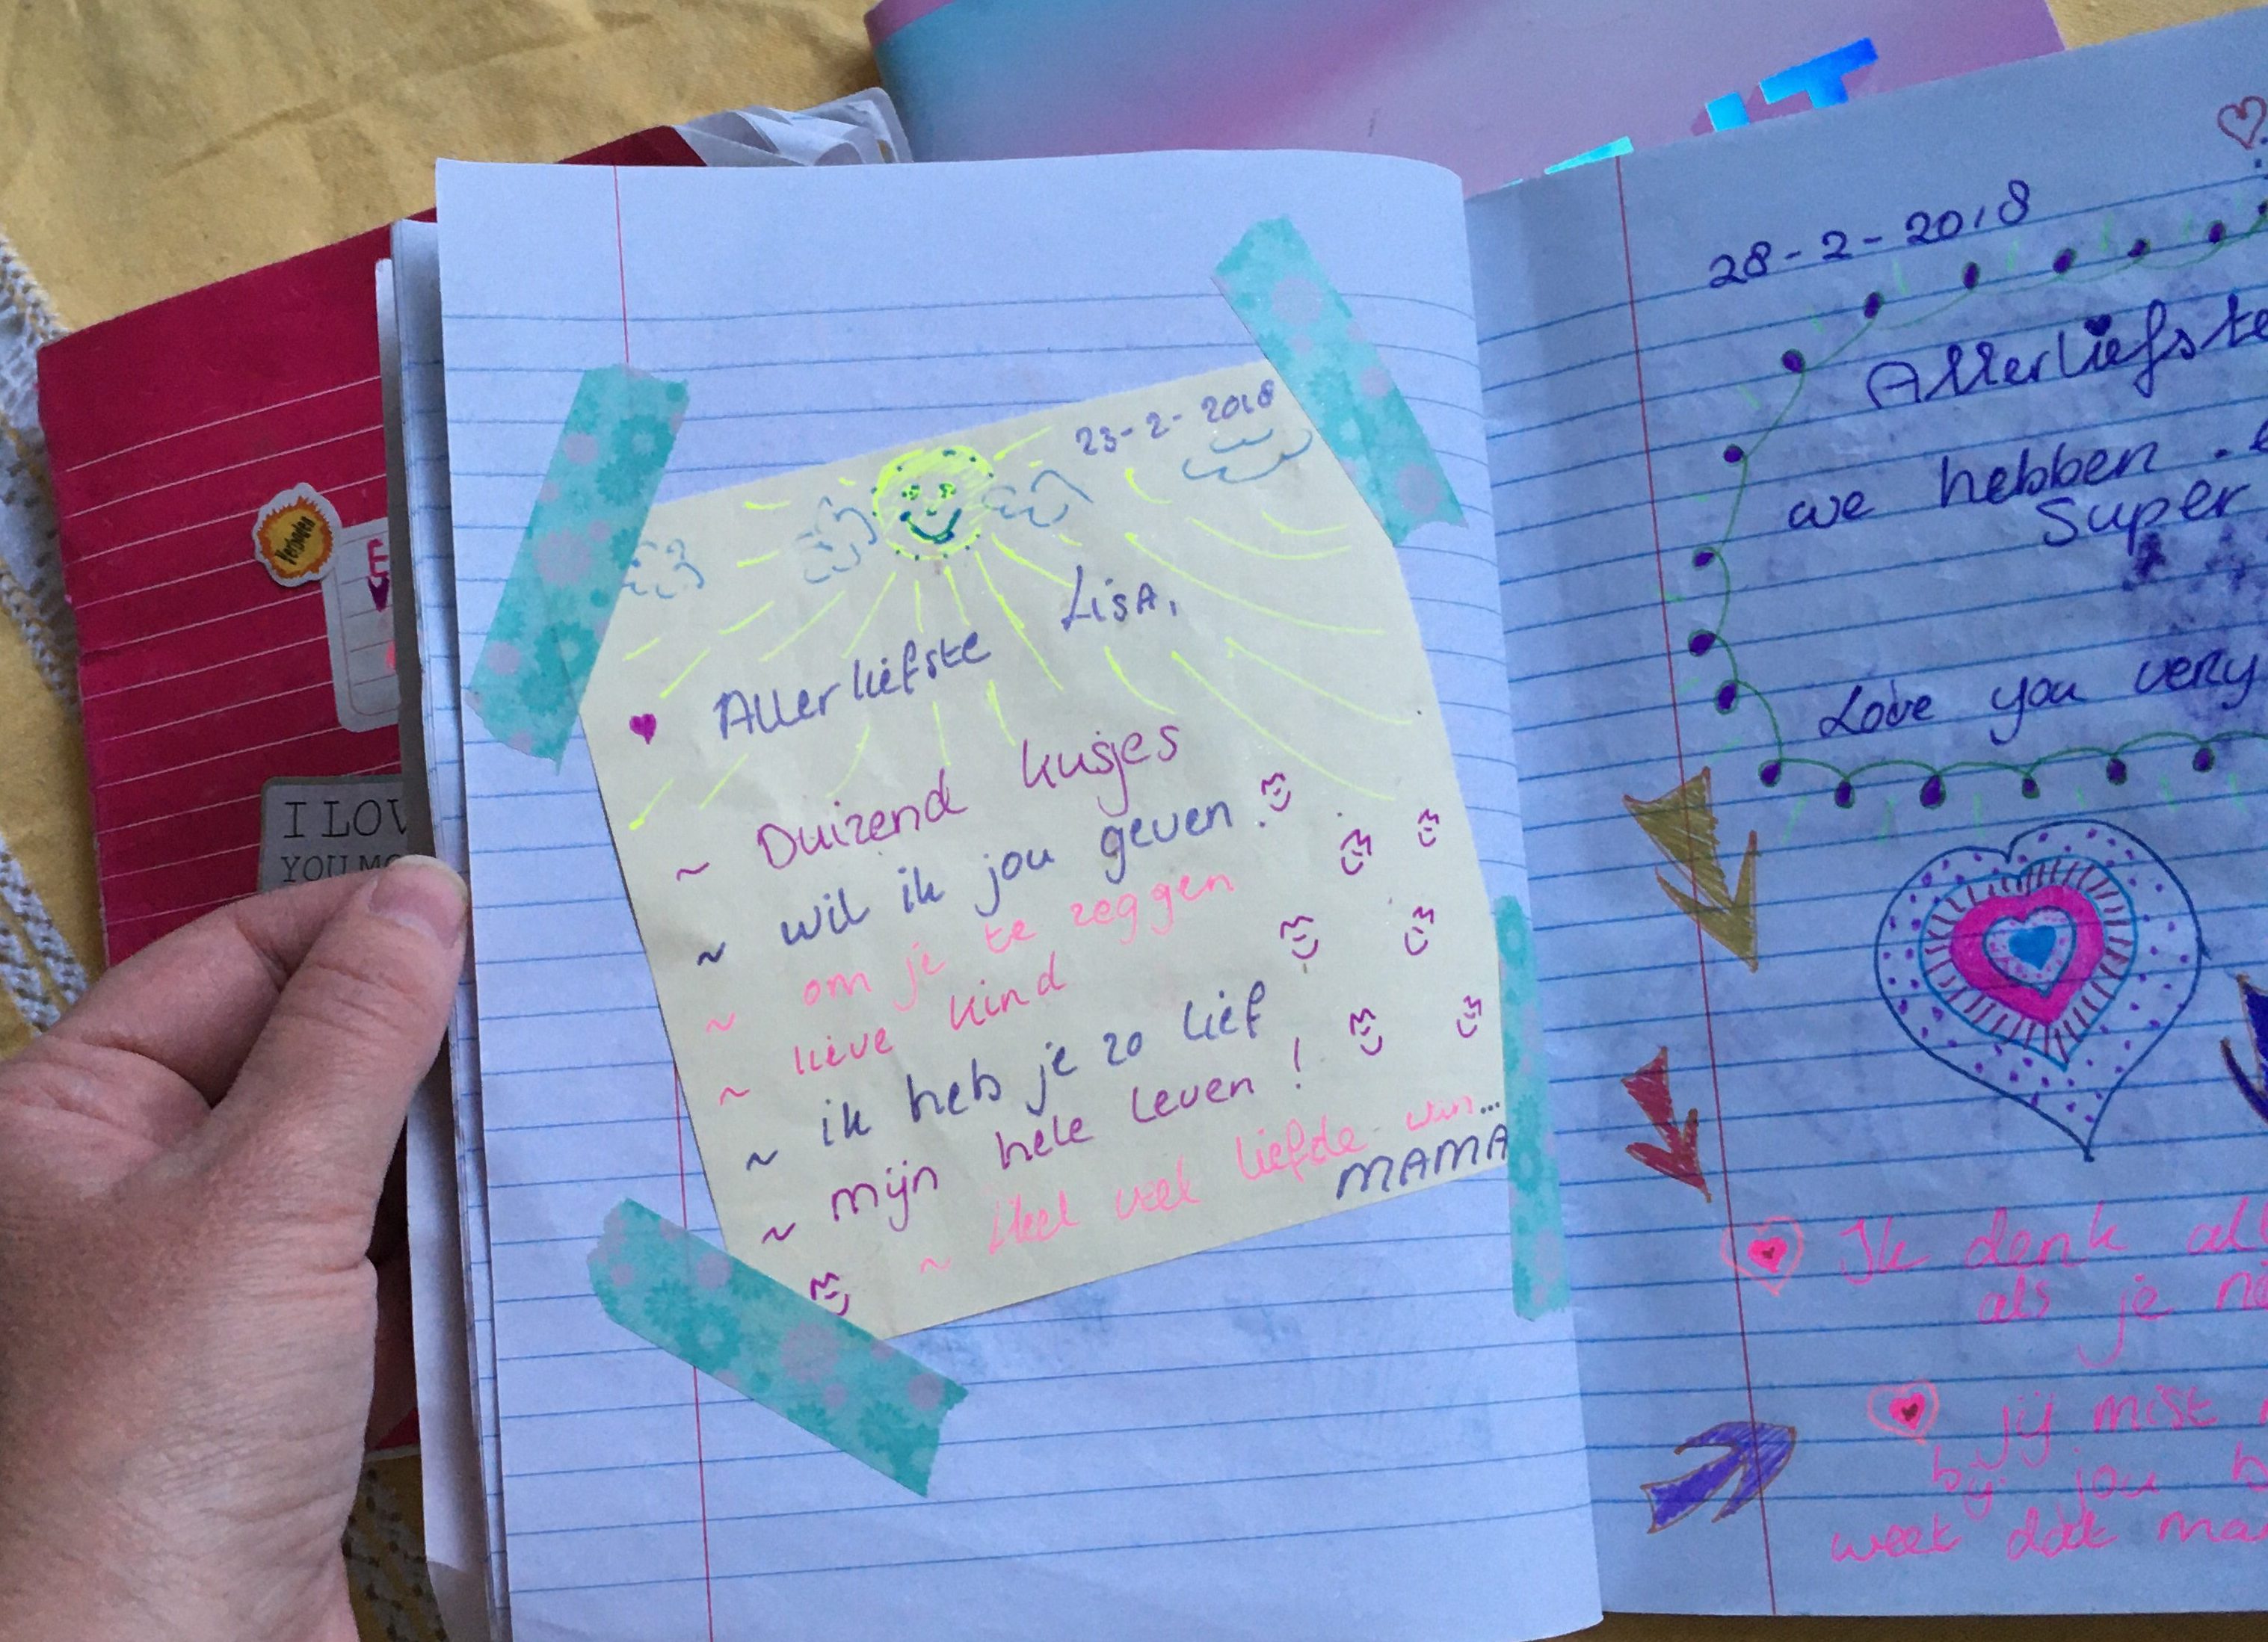 IT
Verboden
E
I LOV
YOU MO
23-2-2018
Allerliefste Lisa,
~ Duizend kusjes
~ wil ik jou geven.
~ om je te zeggen
~ lieve kind
~ ik heb je zo lief
~ mijn hele leven!
~ Heel veel liefde van...
MAMA
28-2-2018
Allerliefste
we hebben
Super
Love you very
Ik denk al
als je ni
jij mist
bij jou
weet dat ma